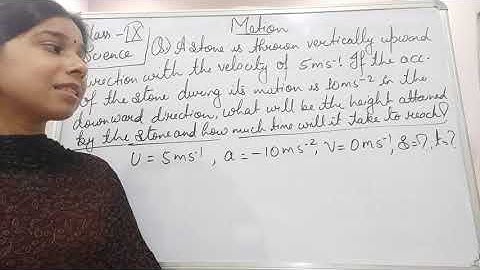 Motion
Class - IX
Science
Q) A stone is thrown vertically upward
direction with the velocity of 5ms⁻¹. If the acc-
of the stone during its motion is 10ms⁻² in the
downward direction, what will be the height attained
by the stone and how much time will it take to reach?
U = 5ms⁻¹, a = -10ms⁻², V = 0ms⁻¹, s=?, t=?